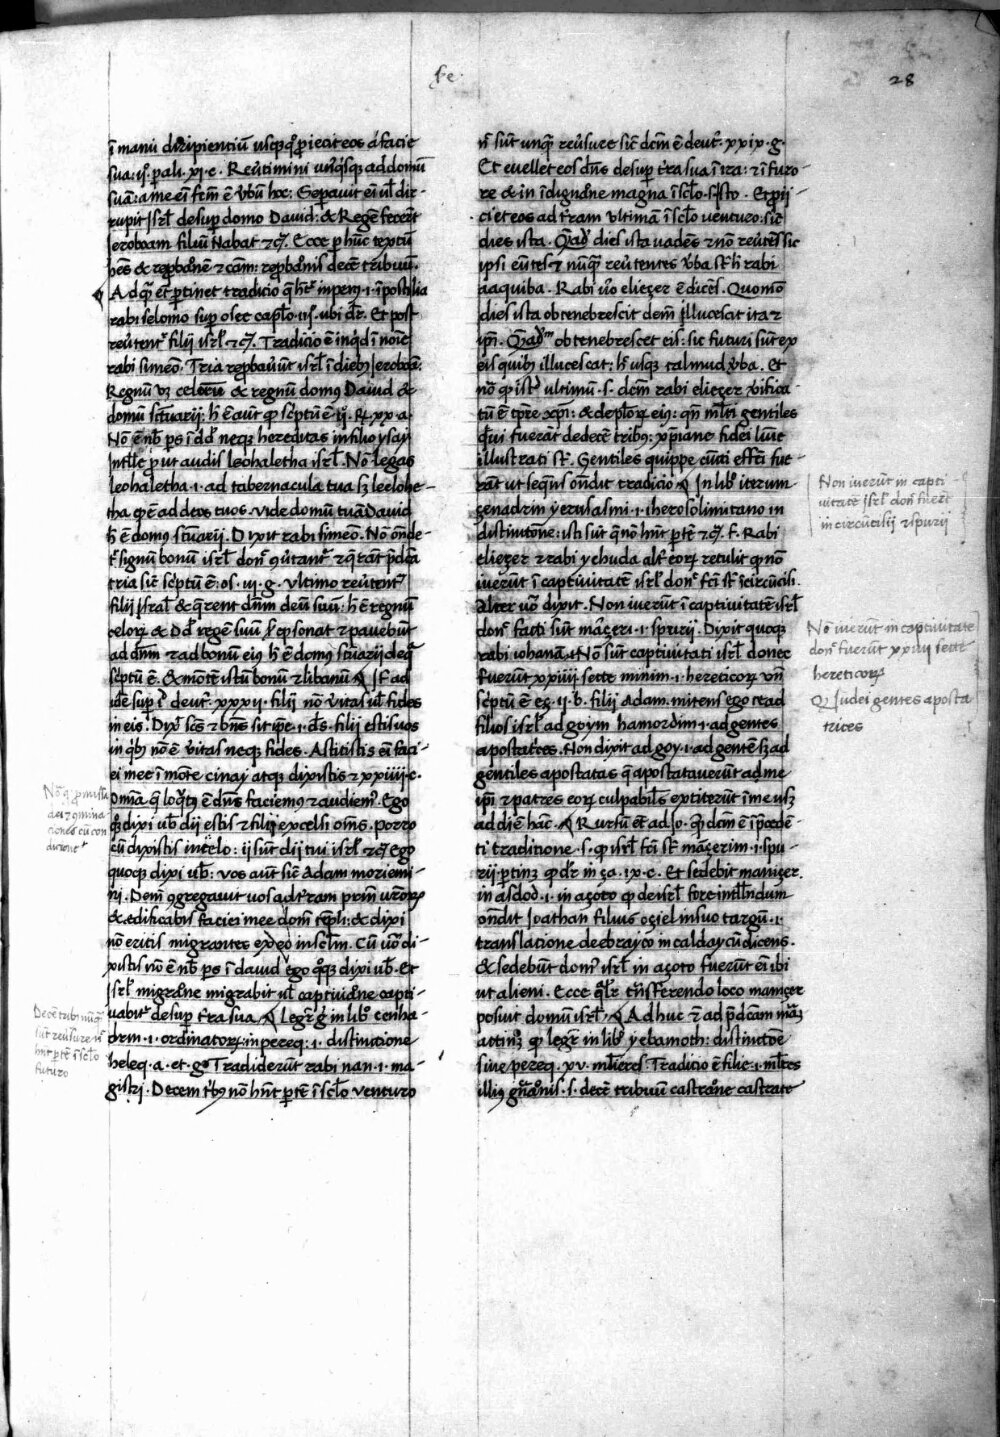 fe.
28
ī manū diripientiū usq̄q̨ ꝓieciteos a facie
sua: ii. pali. xi. c. Reūtimini un̄qsq̨ ad domū
suā: a me eī fcm̄ ē ūbū hoc. Sepauit eī ul̄ dir-
rupit Jsrl̄ desup domo Dauid: & Regē fecert̄
Jeroboam filiū Nabat ⁊c̄. Ecce p hūc textū
hēs & reprbōnē ⁊ cām: reprbōnis decē tribuū.
Ad q̄ et ptinet tradicio q̄ hr̄ in pereq̨ .i. ī postilia
rabi selomo sup osee cap̄lo .iij. ubi dr̄. Et post
reūtent̄ filii isrl̄ ⁊c̄. Tradicio ē inq̄d ī noīe
rabi simeō. Tria reprbauūt isrl̄ ī dieb̨ Jeroboā.
Regnū vꝫ celorū & regnū domꝰ Dauid &
domū sctuarii: h̄ ē aūt qp sc̄ptū ē .iij. Rꝫ. xx. a.
Nō ē nb̄ ps ī dd̄ neq̨ hereditas in filio ysay
Intll̄c put audis leohaletha isrl̄. Nō legas
leohaletha .i. ad tabernacula tua sꝫ leelohe-
tha qp ē ad deos tuos. vide domū tuā Dauid
h̄ ē domꝰ sctuarii. Dixit rabi simeō. Nō ōnde-
t̄ signū bonū isrl̄ donc̄ ꝯūtant̄ ⁊ q̄rant p̄dca
tria sic̄ sc̄ptū ē: os. iii. g. ultimo reūtent̄
filii isral̄ & q̄rent dn̄m deū suū: h̄ ē regnū
celorꝫ & Dd̄ regē suū f̄ cpsonat ⁊ pauebūt
ad dn̄m ⁊ ad bonū eiꝰ h̄ ē domꝰ sctuarii de q̄
sc̄ptū ē. & mōtē istū bonū ⁊ libanū ¶ Jt̄ ad
idē sup ī deut̄. xxxii. filii nō ūitas ul̄ fides
in eis. Dix̄ scs̄ ⁊ bn̄s sit ipe .i. ds̄. filii estis uos
in q̄b̨ nō ē ūitas neq̨ fides. Astitistis eī faci-
ei mee ī mōte cinay atq̨ dixistis ⁊ xxiiii. c.
Om̄ia q̄ loq̄tꝰ ē dn̄s faciemꝰ ⁊ audiemꝰ. Ego
q̨ dixi ub̄ dii estis ⁊ filii excelsi om̄s. porro
cū dixistis intēlo: ii sūt dii tui isrl̄ ⁊c̄ Ego
quoq̨ dixi ub̄: vos aūt sic̄ Adam moriemi-
ni. Dem̄ ꝯgregauit uos ad tr̄am prim̄ ur̄orꝫ
& edificabis faciei mee dom̄ tēpli: & dixi
nō eritis migrantes ex eo in sclm̄. Cū uo di-
xistis nō ē nb̄ ps ī dauid ego q̨q̨ dixi ub̄. Et
Jsrl̄ migrāne migrabit ul̄ captiuiāne capti-
uabit̄ desup tr̄a sua. ¶ Legr̄ g̊ in lib̊ cenha-
drin .i. ordinatorꝫ in pereq̨ .i. distinctione
heleq̨. a. et. go Tradiderūt rabi nan .i. ma-
gistri. Decem t̄b̨ nō hn̄t ptē ī sclo venturo
n̄ sūt unq̄ reūsure sic̄ dcm̄ ē deut̄. xxix. g.
Et euellet eos dn̄s desup tr̄a sua ī ira: ⁊ ī furo-
re & in īdignāne magna ī sclo .s. isto. Et pii-
ciet eos ad tr̄am ultimā ī sclo venturo: sic̄
dies ista. Qūad̄ dies ista uadēs ⁊ nō reūtēs sic
ipsi eūtes ⁊ nūq̄ reūtentes ūba st̄ h̄ rabi
aaquiba. Rabi ūo elieçer ē dicēs. Quomō
dies ista obtenebrescit dem̄ illucescit ita ⁊
ipi. Qūad̄m obtenebrescet eis: sic futuri sūt ex
eis quib̨ illucescat: h̄ usq̨ talmud ūba. Et
nō qp ist̄ ultimū .s. dem̄ rabi elieçer ūifica-
tū ē tpr̄e xp̄i: & aplorꝫ eiꝰ: qn̄ ml̄ti gentiles
q̄ui fuerāt dedecē trib̨: xp̄iane fidei lūie
illustrati st̄. Gentiles quippe cūcti effcī fue-
rāt ut seq̄ns ōndit tradicio ¶ In lib̊ iterum
çenadrin yerusalmi .i. iherosolimitano in
distinctōne: isti sūt q̄ nō hn̄t ptē ⁊c̄. f. Rabi
elieçer ⁊ rabi yehuda alt̄ eorꝫ retulit qp nō
iuerūt ī captiuitatē isrl̄ donc̄ fcī st̄ ī circūcisi.
Alter uo dixit. Non iuerūt ī captiuitatē isrl̄
donc̄ facti sūt māçeri .i. spurii. Dixit quoq̨
rabi iohanā. Nō sūt captiuitati isrl̄ donec
fuerūt xxiiii secte minim .i. hereticorꝫ vn̄
sc̄ptū ē eꝫ. ii. b. filii Adam. mitens ego te ad
filios isrl̄ ad goym hamordim .i. ad gentes
apostatr̄ces. Non dixit ad goy .i. ad gentē sꝫ ad
gentiles apostatas q̄ apostatauerūt ad me
ipi ⁊ patres eorꝫ culpabil̄s extiterūt ī me usꝫ
ad diē hāc. ¶ Rursū et̄ ad Jo. qp dcm̄ ē ī p̄cedē-
ti traditione .s. qp isrl̄ fcī st̄ māçerim .i. spu-
rii ptinꝫ qp dr̄ in ça. ix. c. Et sedebit mamçer.
in asdod .i. in açoto qp de isrl̄ fore intll̄ndum
ōndit Joathan filius oçiel in suo targū .i.
translacione de ebrayco in caldaycū dicens.
& sedebūt domꝰ isrl̄ in açoto fuerūt eī ibi
ut alieni. Ecce qlr̄ trn̄sferendo loco mamçer
posuit domū isrl̄. ¶ Adhuc ⁊ ad p̄dcam mām
attinꝫ qp legr̄ in lib̊ yebamoth: distinctōe
siue pereq̨. xv. mulieres. Tradicio ē filie .i. ml̄res
illiꝰ gn̄ationis .s. decē tribuū castrōne castrate
Non iuerūt in capti
uitatē isrl̄ donc̄ fuert̄
in circūcisii ⁊ spurii
Nō iuerūt in captiuitate
donc̄ fuerūt xxiiii secte
hereticorꝫ
Qp Judei gentes aposta
trices
Decē tribꝰ nūq̄
sūt reūsure n̄
hn̄t ptē ī sclo
futuro